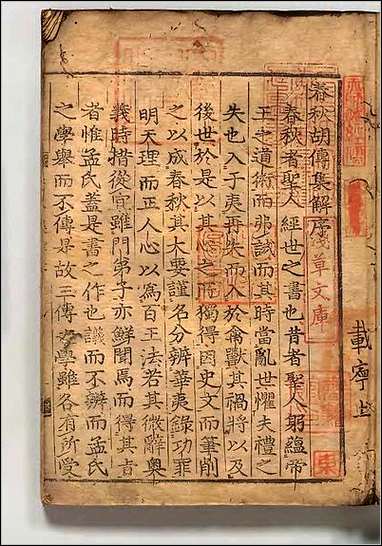 春秋胡傳集解序
淺草文庫
春秋者聖人經世之書也昔者聖人躬蘊帝
王之道術而弗試而其時當亂世懼夫禮之
失也入于夷再失而入於禽獸其禍將以及
後世於是以其心之所獨得因史文而筆削
之以成春秋其大要謹名分辨華夷錄功罪
明天理而正人心以為百王法若其微辭奧
義時措從宜雖門弟子亦鮮聞焉而得其旨
者惟孟氏蓋是書之作也議而不辨而孟氏
之學舉而不傳是故三傳者學雖各有所受
載寧上